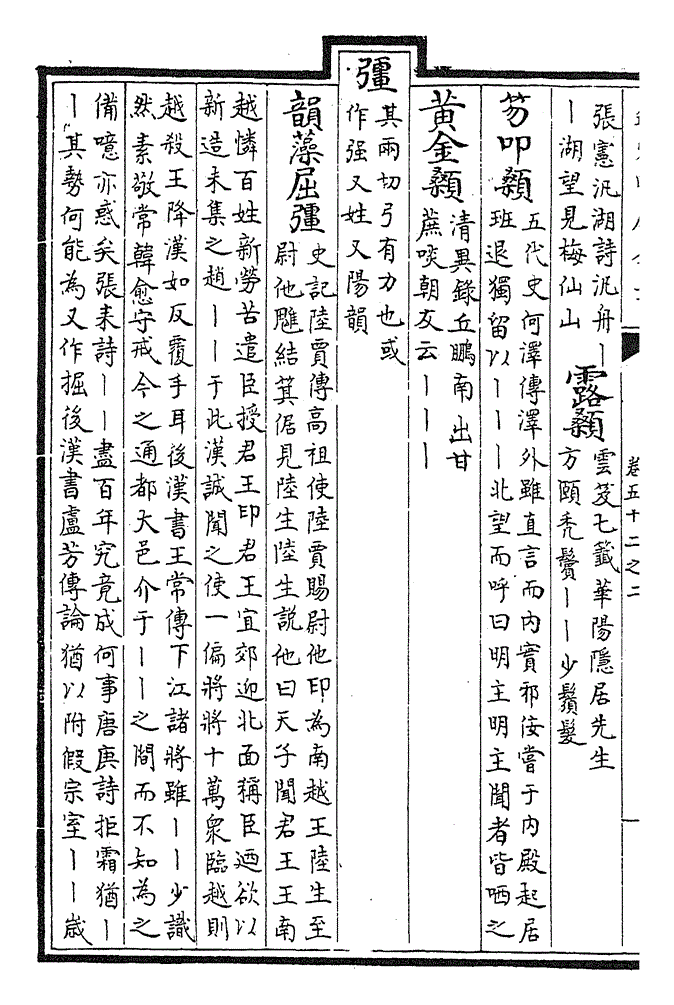 張憲汎湖詩汎舟丨
丨湖望見梅仙山
露顙
雲笈七籤華陽隱居先生
方頤禿鬢丨丨少鬚髮
笏叩顙
五代史何澤傳澤外雖直言而內實邪佞嘗于内殿起居
班退獨留以丨丨丨北望而呼曰明主明主聞者皆哂之
黄金顙
清異錄丘鵬南出甘
蔗啖朝友云丨丨丨
彊
其兩切弓有力也或
作强又姓又陽韻
韻藻屈彊
史記陸賈傳高祖使陸賈賜尉他印為南越王陸生至
尉他魋結箕倨見陸生陸生説他曰天子聞君王王南
越憐百姓新勞苦遣臣授君王印君王宜郊迎北面稱臣迺欲以
新造未集之趙丨丨于此漢誠聞之使一偏將將十萬衆臨越則
越殺王降漢如反覆手耳後漢書王常傳下江諸將雖丨丨少識
然素敬常韓愈守戒今之通都大邑介于丨丨之間而不知為之
備噫亦惑矣張耒詩丨丨盡百年究竟成何事唐庚詩拒霜猶丨
丨其勢何能為又作掘後漢書盧芳傳論猶以附假宗室丨丨歲
卷五十二之二